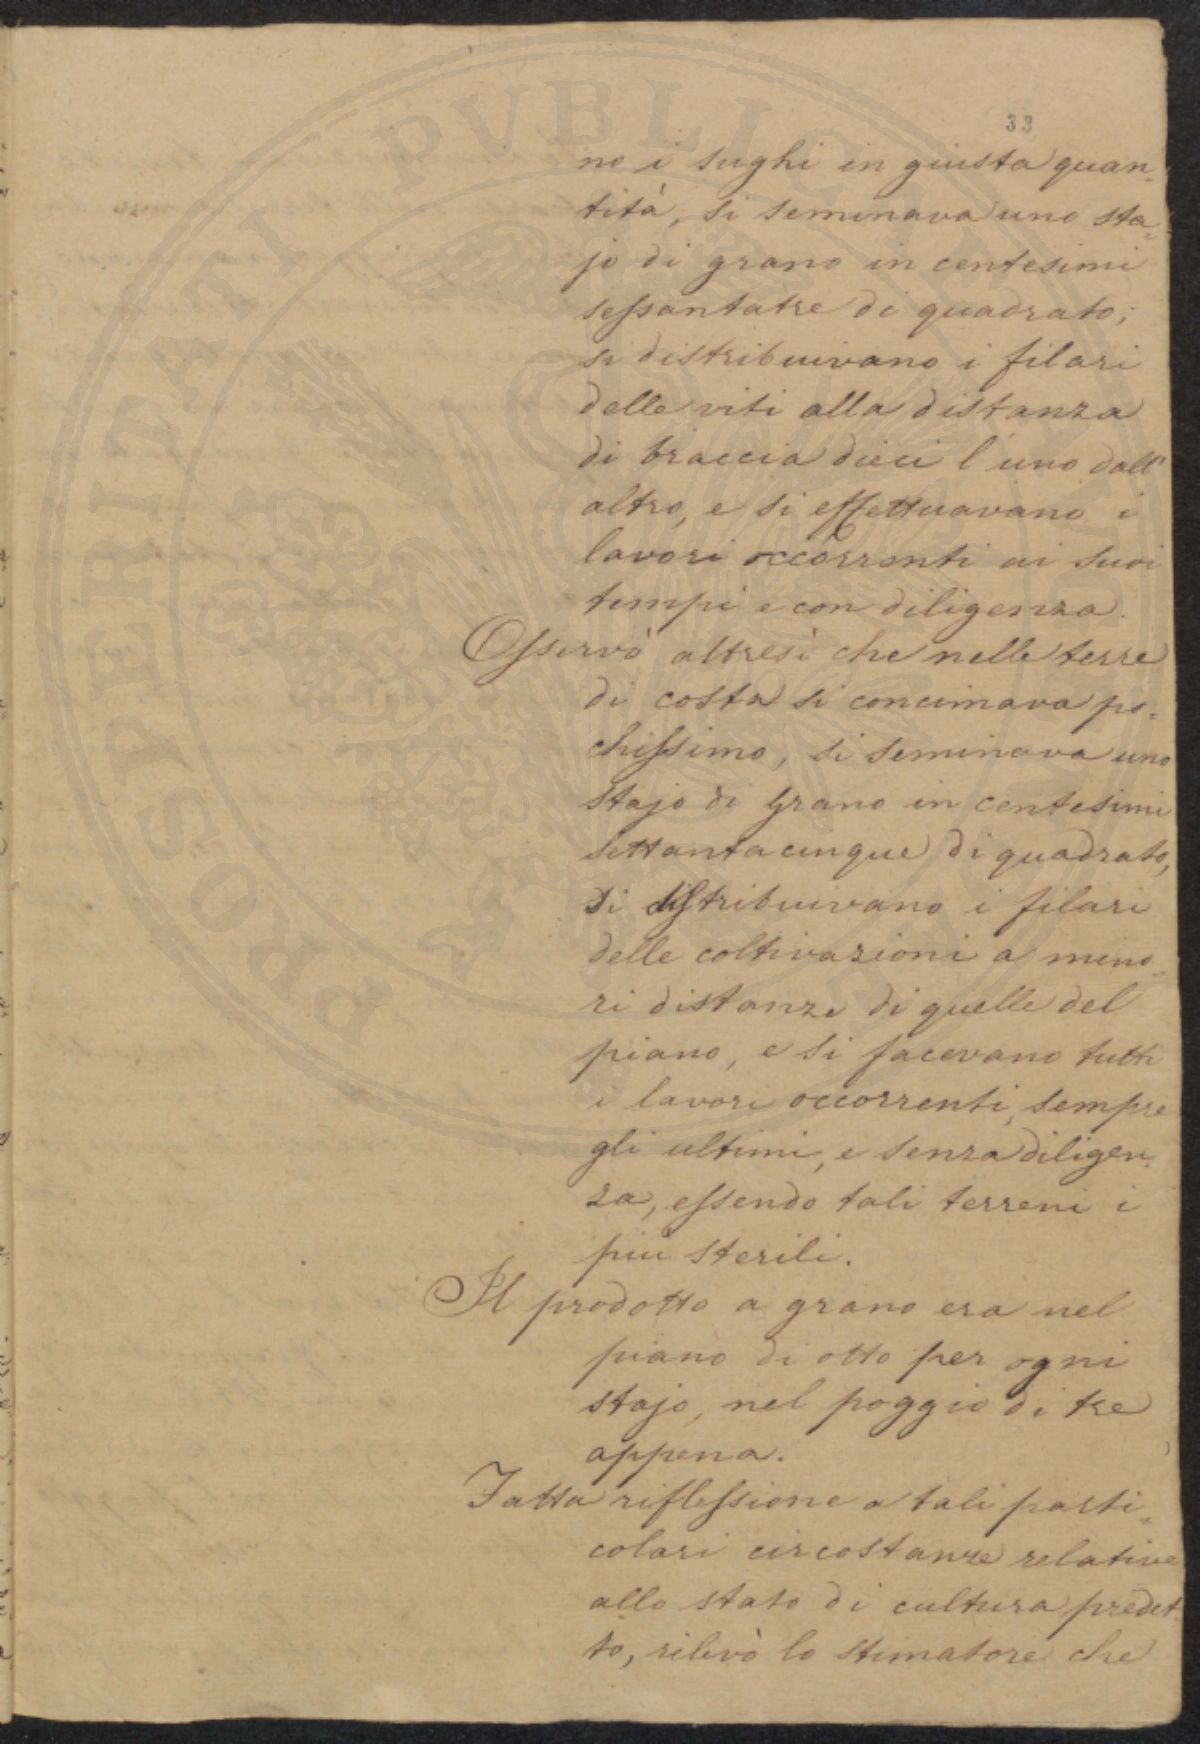 33
no i sughi in giusta quan-
tità, si seminava uno sta-
jo di grano in centesimi
sessantatre di quadrato;
si distribuivano i filari
delle viti alla distanza
di braccia dieci l'uno dall'
altro, e si effettuavano i
lavori occorrenti ai suoi
tempi e con diligenza.
Osservò altresì che nelle terre
di costa si concimava po-
chissimo, si seminava uno
stajo di grano in centesimi
settantacinque di quadrato,
si distribuivano i filari
delle coltivazioni a mino-
ri distanze di quelle del
piano, e si facevano tutti
i lavori occorrenti, sempre
gli ultimi, e senza diligen-
za, essendo tali terreni i
più sterili.
Il prodotto a grano era nel
piano di otto per ogni
stajo, nel poggio di tre
appena.
Fatta riflessione a tali parti-
colari circostanze relative
allo stato di cultura predet-
to, rilevò lo stimatore che
PROSPERITATI PVBLICAE